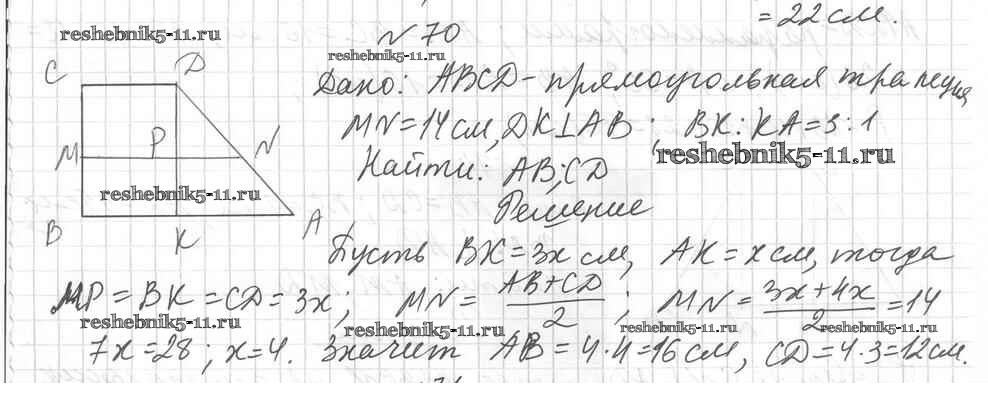 = 22 см.
reshebnik5-11.ru
№ 70
reshebnik5-11.ru
C D
Дано: ABCD - прямоугольная трапеция
MN = 14 см, DK ⊥ AB; BK : KA = 3 : 1
M P N
reshebnik5-11.ru
Найти: AB; CD
reshebnik5-11.ru
Решение
B K A
Пусть BK = 3x см, AK = x см, тогда
MP = BK = CD = 3x; MN = (AB + CD)/2; MN = (3x + 4x)/2 = 14
reshebnik5-11.ru reshebnik5-11.ru reshebnik5-11.ru
7x = 28; x = 4. Значит AB = 4 · 4 = 16 см, CD = 4 · 3 = 12 см.